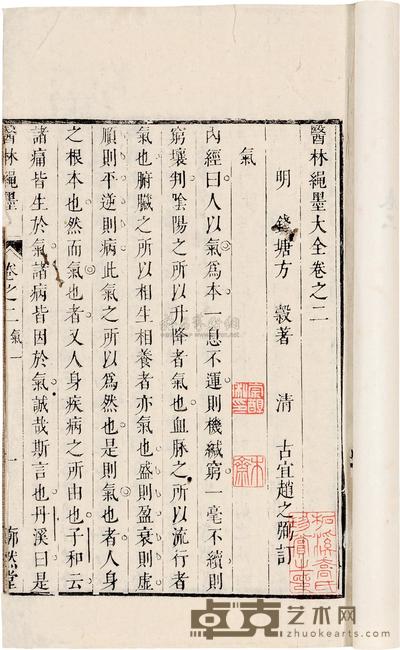 醫林繩墨大全卷之二
明 錢塘方 穀著 清 古宜趙之弼訂
氣
內經曰人以氣為本一息不運則機緘窮一毫不續則
窮壤判陰陽之所以升降者氣也血脉之所以流行者
氣也腑臟之所以相生相養者亦氣也盛則盈衰則虛
順則平逆則病此氣之所以為然也是則氣也者人身
之根本也然而氣也者又人身疾病之所由也子和云
諸痛皆生於氣諸病皆因於氣誠哉斯言也丹溪曰是
醫林繩墨 卷之二 氣 一 廓然堂
卓克艺术网
www.zhuokearts.com